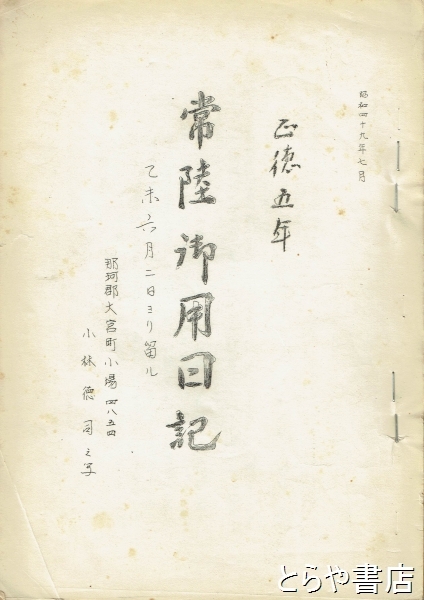 昭和四十九年七月
正徳五年
常陸御用日記
乙未六月二日ヨリ留ル
那珂郡大宮町小場四八五四
小林徳司之写
とらや書店